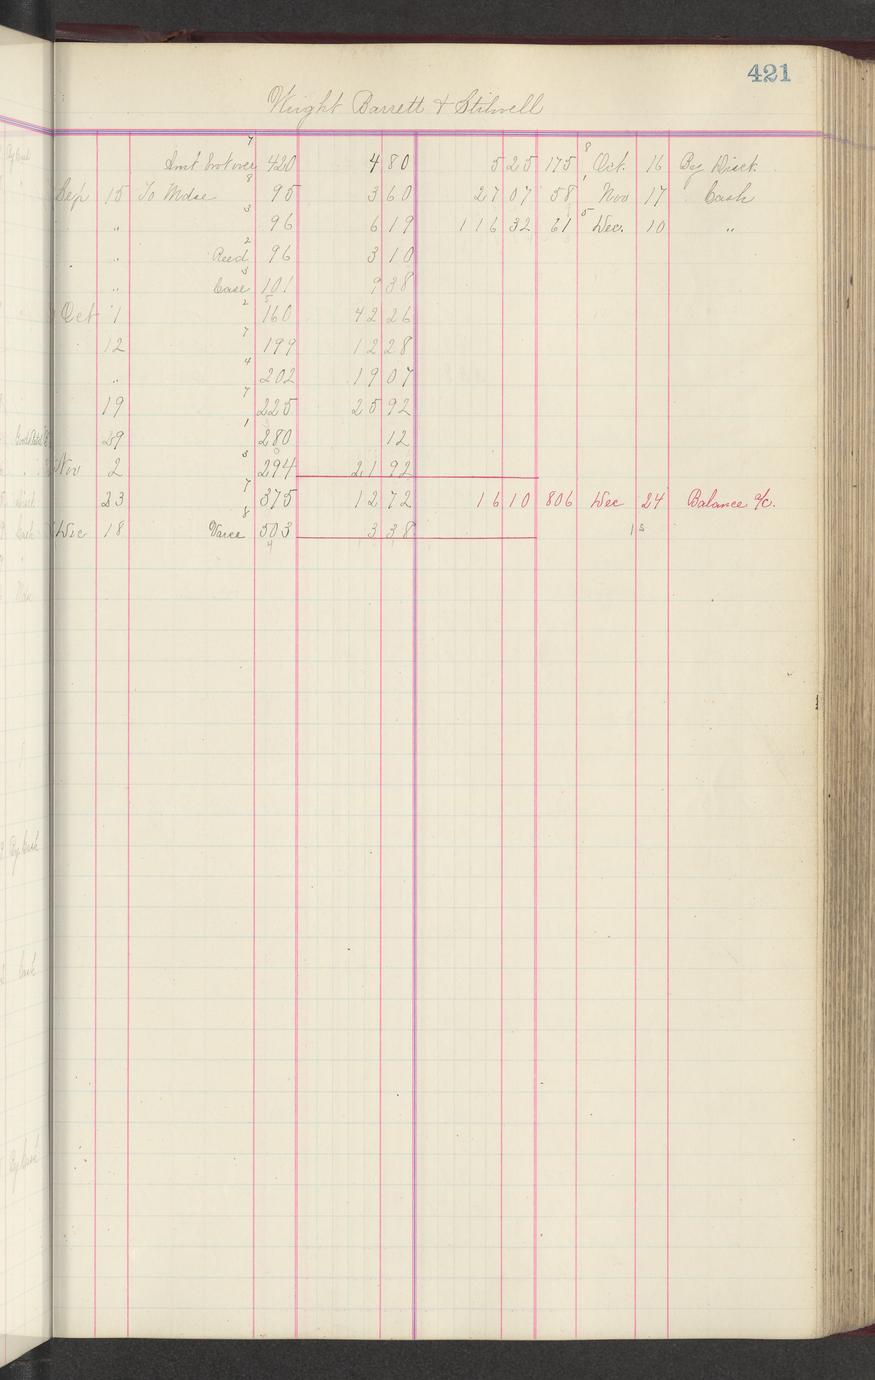 421
Wright Barrett & Stilwell
Amt brot over 7 420 4 80 5 25 175 8 Oct. 16 By Disct.
Sep 15 To Mdse 8 95 3 60 27 07 58 1 Nov 17 Cash
" 3 96 6 19 116 32 61 5 Dec. 10 "
" Reed 2 96 3 10
" Case 3 101 9 38
Oct 1 2 160 42 26
12 7 199 12 28
" 4 202 19 07
19 7 225 25 92
29 1 280 12
Nov 2 3 294 21 92
23 7 375 12 72 16 10 806 Dec 24 Balance a/c.
Dec 18 8 503 3 38